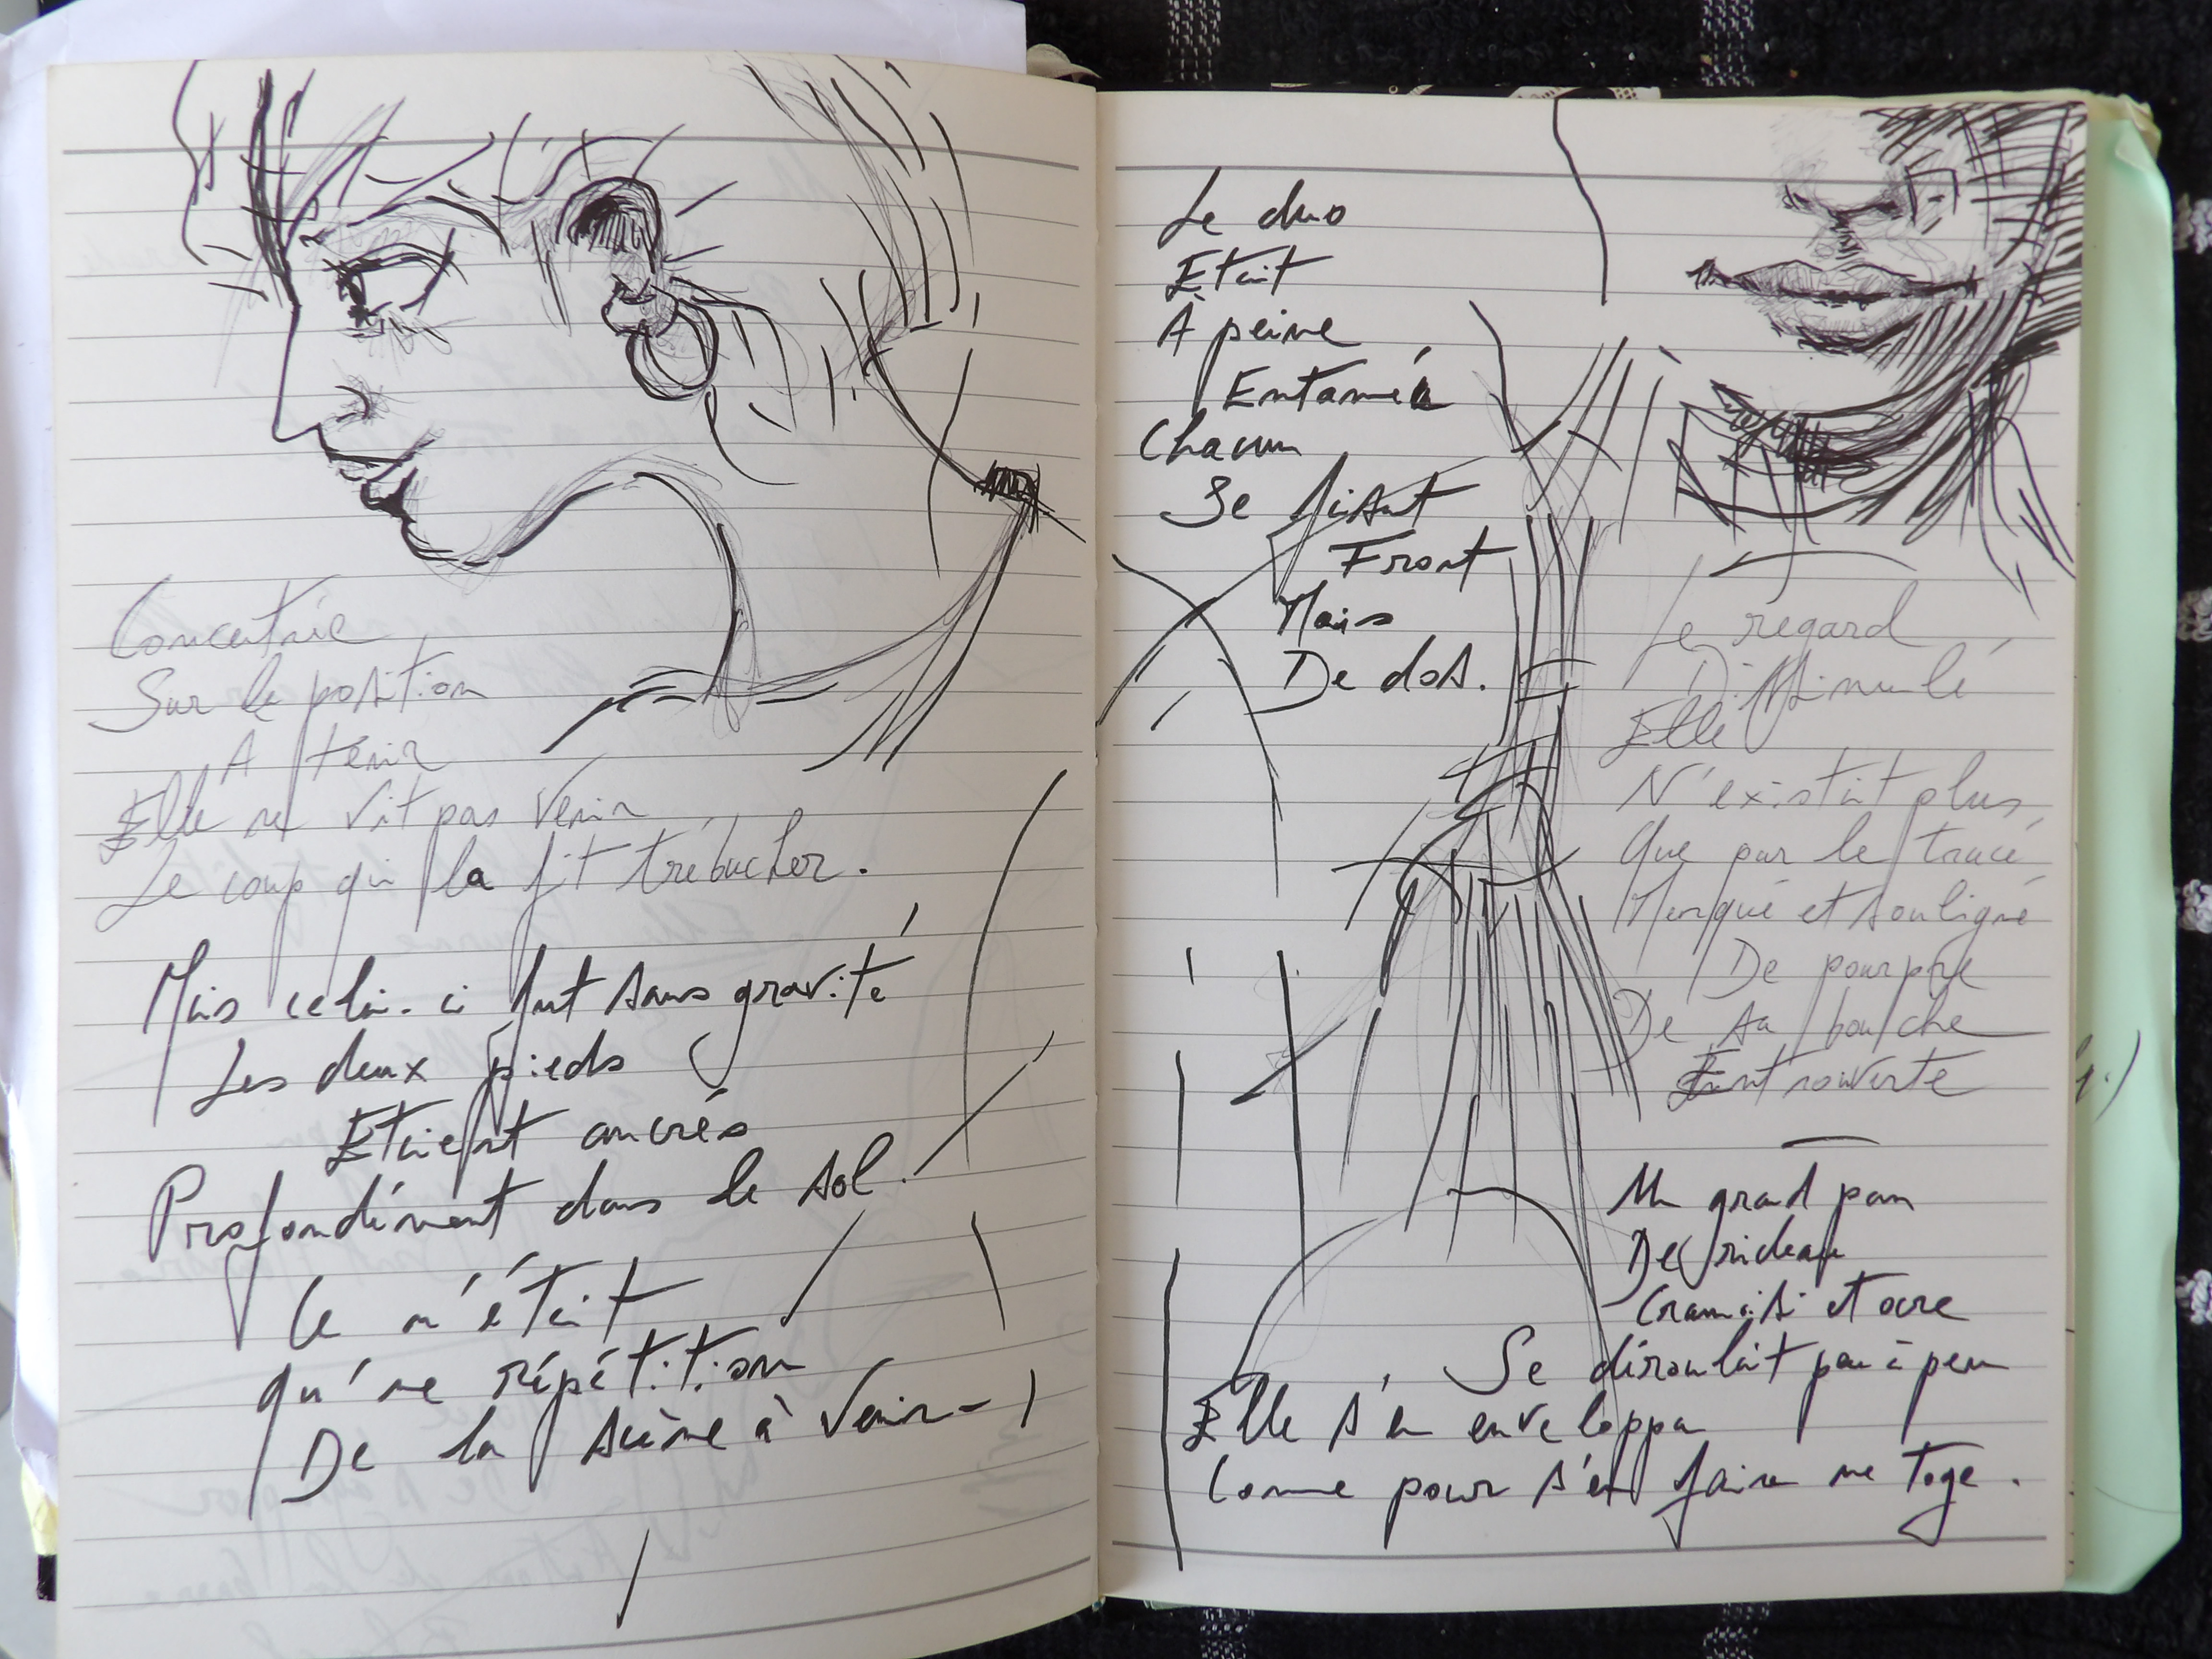 Concentrée
Sur la position
A tenir
Elle ne vit pas venir
Le coup qui la fit trébucher.
Mais celui-ci fut sans gravité
Les deux pieds
Etaient ancrés
Profondément dans le sol.
Ce n'était
qu'une répétition
De la scène à venir -
Le duo
Etait
À peine
Entamé
Chacun
Se faisant
Front
Mais
De dos.
Le regard
Dissimulé
Elle
N'existait plus
Que par le tracé
Marqué et souligné
De pourpre
De sa bouche
Entrouverte
Un grand pan
De rideau
Cramoisi et ocre
Se déroulait peu à peu
Elle s'en enveloppa
Comme pour s'en faire une toge.